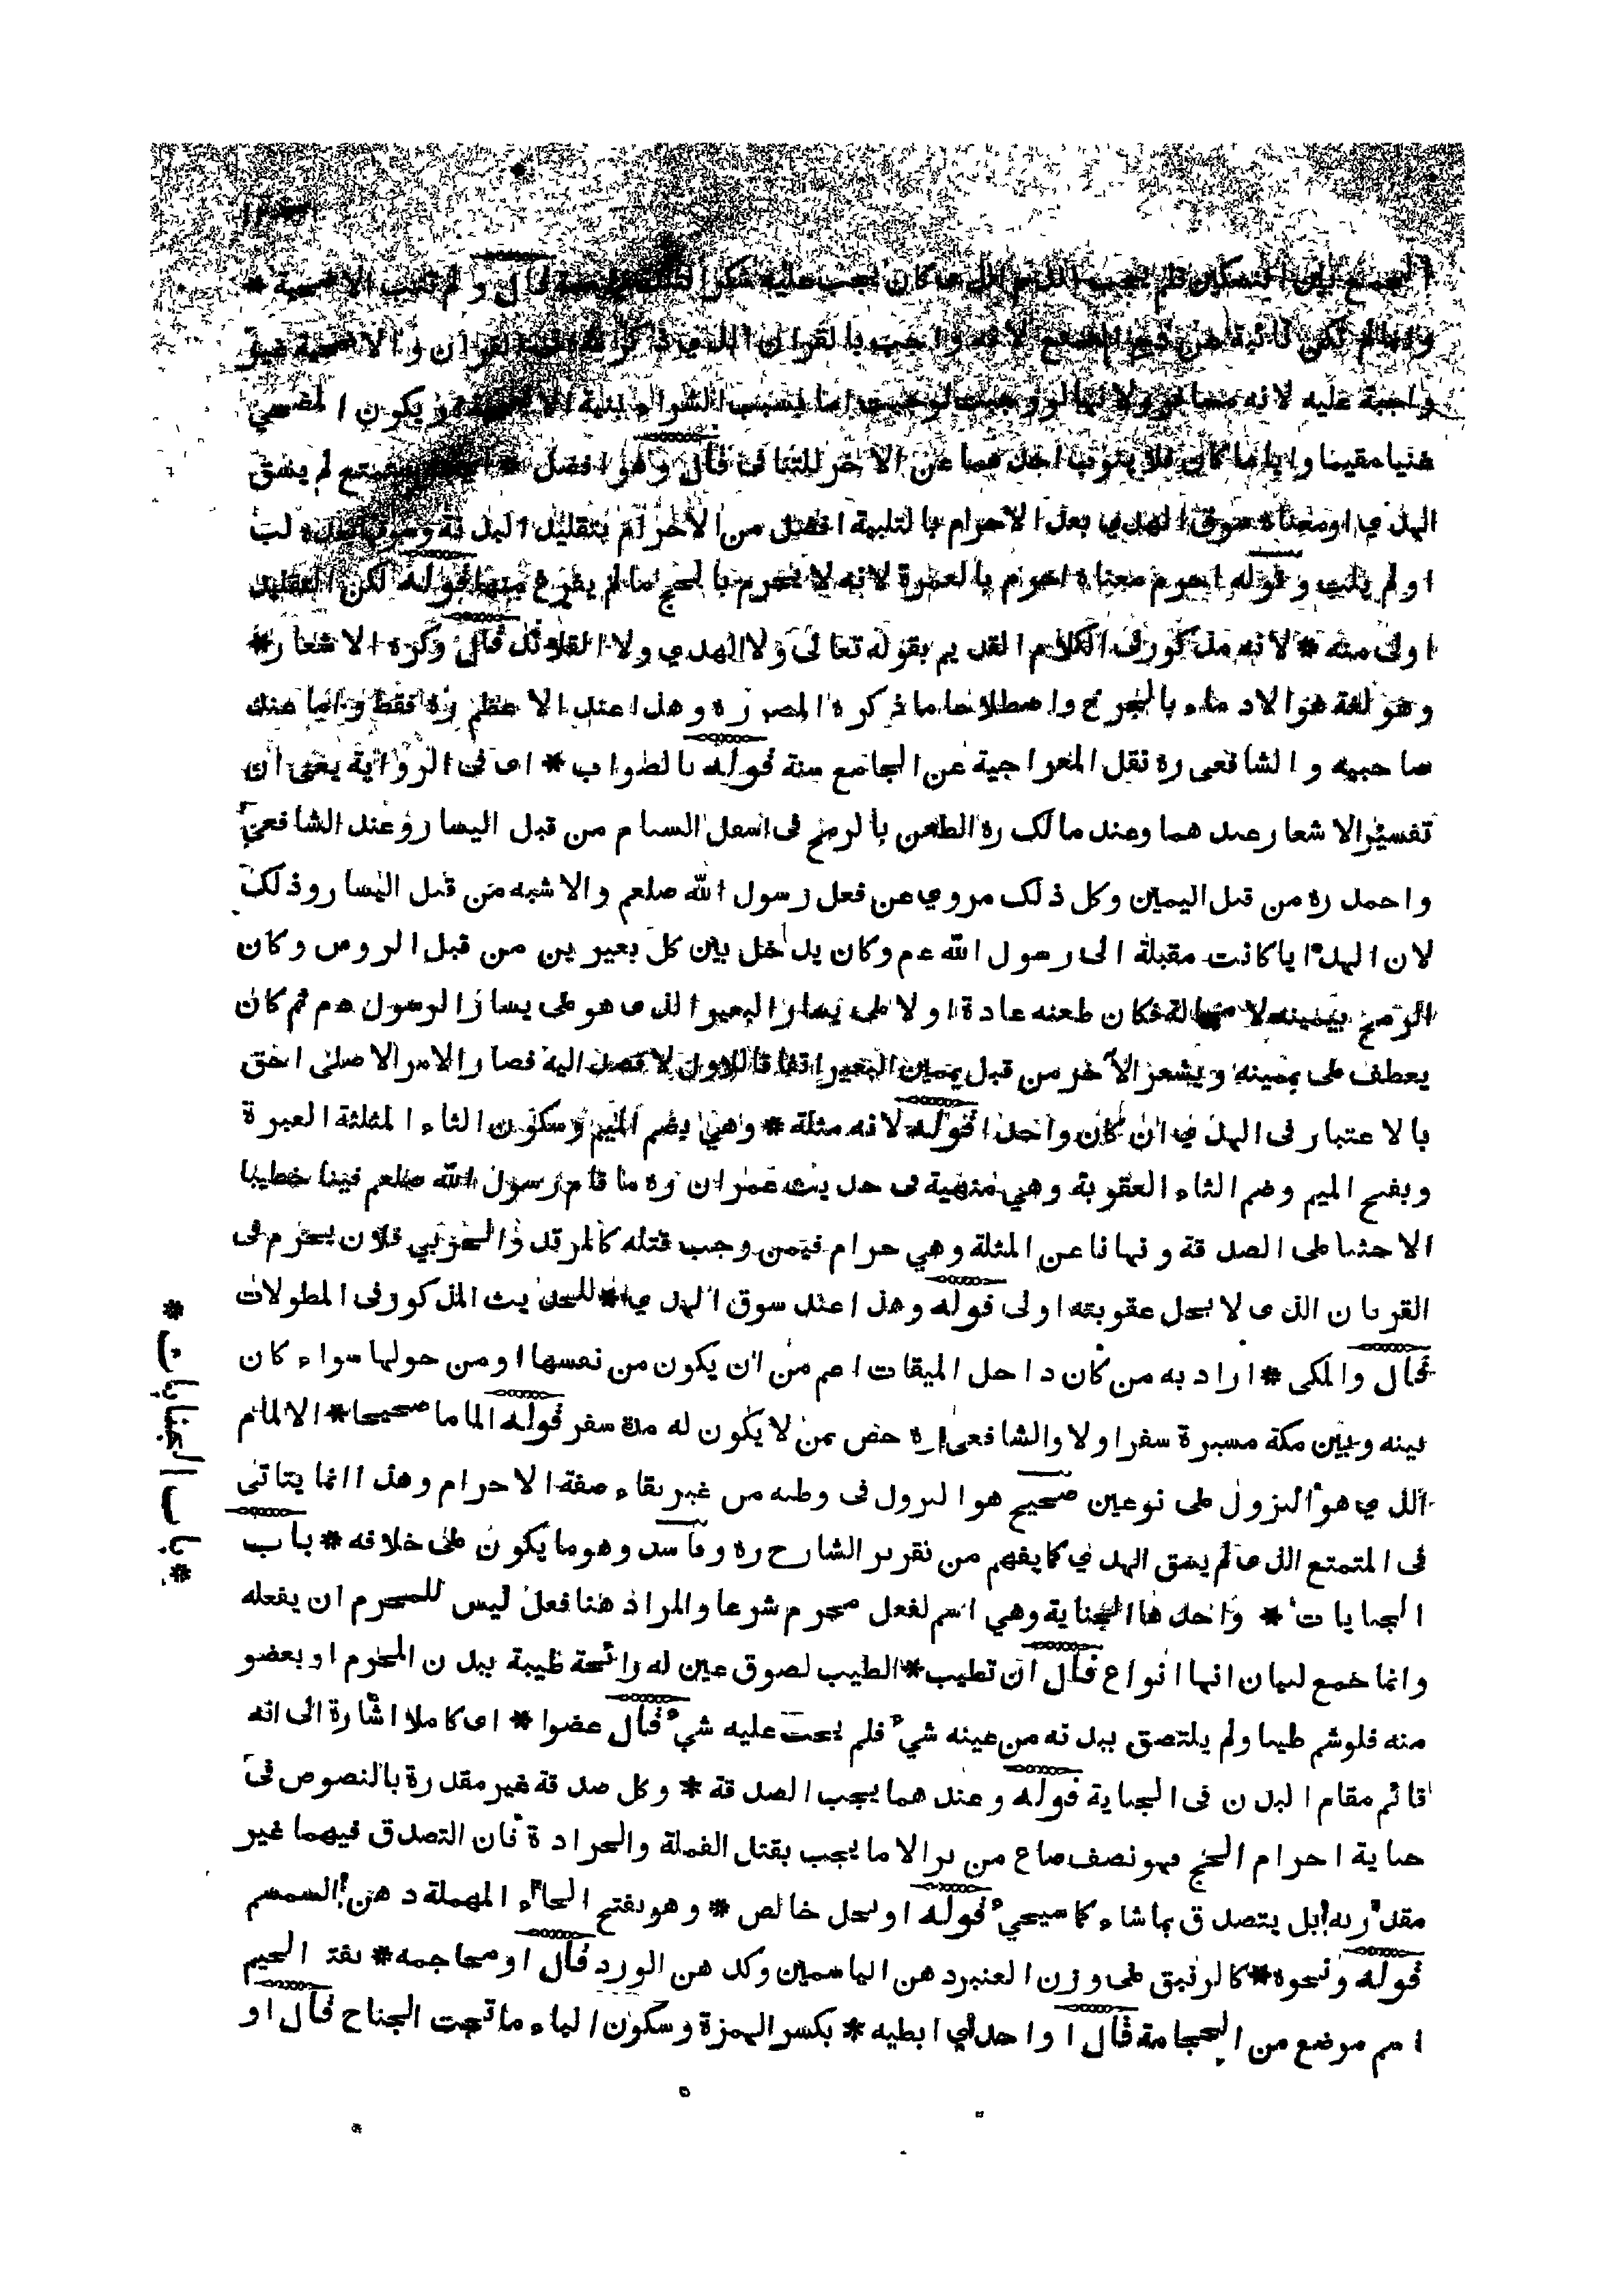 الجمع بين النسكين فلم يجب الدم الذى كان يجب عليه شكرا قال ولم تنب الاضحية *
وانما لم تكن نائبة عن دم الجمع لانه واجب بالقران الذي القران والاضحية غير
واجبة عليه لانه مسافر ولانها لو وجبت لوجبت اما بسبب الشراء بنية الاضحية او يكون المضحي
غنيا مقيما واياما كان فلا ينوب احدهما عن الاخر للتنافى قال وهو افضل * متمتع لم يسق
الهدي او معناه سوق الهدي بعد الاحرام بالتلبية افضل من الاحرام بتقليد البدنة وسوقها لب
او لم يلب وقوله احرم معناه احرم بالعمرة لانه لا يحرم بالحج ما لم يفرغ منها قوله لكن التقليد
اولى منه * لانه مذكور فى الكلام القديم بقوله تعالى ولا الهدي ولا القلائد قال وكره الاشعار *
وهو لغة هو الادماء بالجرح واصطلاحا ما ذكره المص ره وهذا عند الاعظم ره فقط واما عند
صاحبيه والشافعى ره نقل المعراجية عن الجامع سنة قوله بالصواب * اى فى الرواية يعنى ان
تفسير الاشعار عندهما وعند مالك ره الطعن بالرمح فى اسفل السنام من قبل اليسار وعند الشافعي
واحمد ره من قبل اليمين وكل ذلك مروي عن فعل رسول الله صلعم والاشبه من قبل اليسار وذلك
لان الهدايا كانت مقبلة الى رسول الله عم وكان يدخل بين كل بعيرين من قبل الروس وكان
الرمح بيمينه لا محالة فكان طعنه عادة اولا على يسار البعير الذى هو على يسار الرسول عم ثم كان
يعطف على يمينه ويشعر الاخر من قبل يمين البعير اتفاقا للاول لا قصد اليه فصار الامر الاصلى احق
بالاعتبار فى الهدي ان كان واحدا قوله لانه مثلة * وهي بضم الميم وسكون الثاء المثلثة العبرة
وبفتح الميم وضم الثاء العقوبة وهي منهية فى حديث عمران ره ما قام رسول الله صلعم فينا خطيبا
الا حثنا على الصدقة ونهانا عن المثلة وهي حرام فيمن وجب قتله كالمرتد والحربي فلان يحرم فى
القربان الذى لا يحل عقوبته اولى قوله وهذا عند سوق الهدي * للحديث المذكور فى المطولات
قال والمكى * اراد به من كان داخل الميقات اعم من ان يكون من نفسها او من حولها سواء كان
بينه وبين مكة مسيرة سفر او لا والشافعى ره خص بمن لا يكون له مدة سفر قوله الماما صحيحا * الالمام
الذي هو النزول على نوعين صحيح هو النزول فى وطنه من غير بقاء صفة الاحرام وهذا انما يتاتى
فى المتمتع الذى لم يسق الهدي كما يفهم من تقرير الشارح ره وفاسد وهو ما يكون على خلافه * باب
الجنايات * واحدها الجناية وهي اسم لفعل محرم شرعا والمراد هنا فعل ليس للمحرم ان يفعله
وانما جمع لبيان انها انواع قال ان تطيب * الطيب لصوق عين له رائحة طيبة ببدن المحرم او بعضو
منه فلو شم طيبا ولم يلتصق ببدنه من عينه شيء فلم يجب عليه شيء قال عضوا * اى كاملا اشارة الى انه
قائم مقام البدن فى الجناية قوله وعندهما يجب الصدقة * وكل صدقة غير مقدرة بالنصوص فى
جناية احرام الحج فهو نصف صاع من بر الا ما يجب بقتل القملة والجرادة فان التصدق فيهما غير
مقدر به بل يتصدق بما شاء كما سيجيء قوله او بحل خالص * وهو بفتح الحاء المهملة دهن السمسم
قوله ونحوه * كالزنبق على وزن العنبر دهن الياسمين وكدهن الورد قال او محاجمه * بفتح الجيم
اسم موضع من الحجامة قال او احدي ابطيه * بكسر الهمزة وسكون الباء ما تحت الجناح قال او
* باب الجنايات *